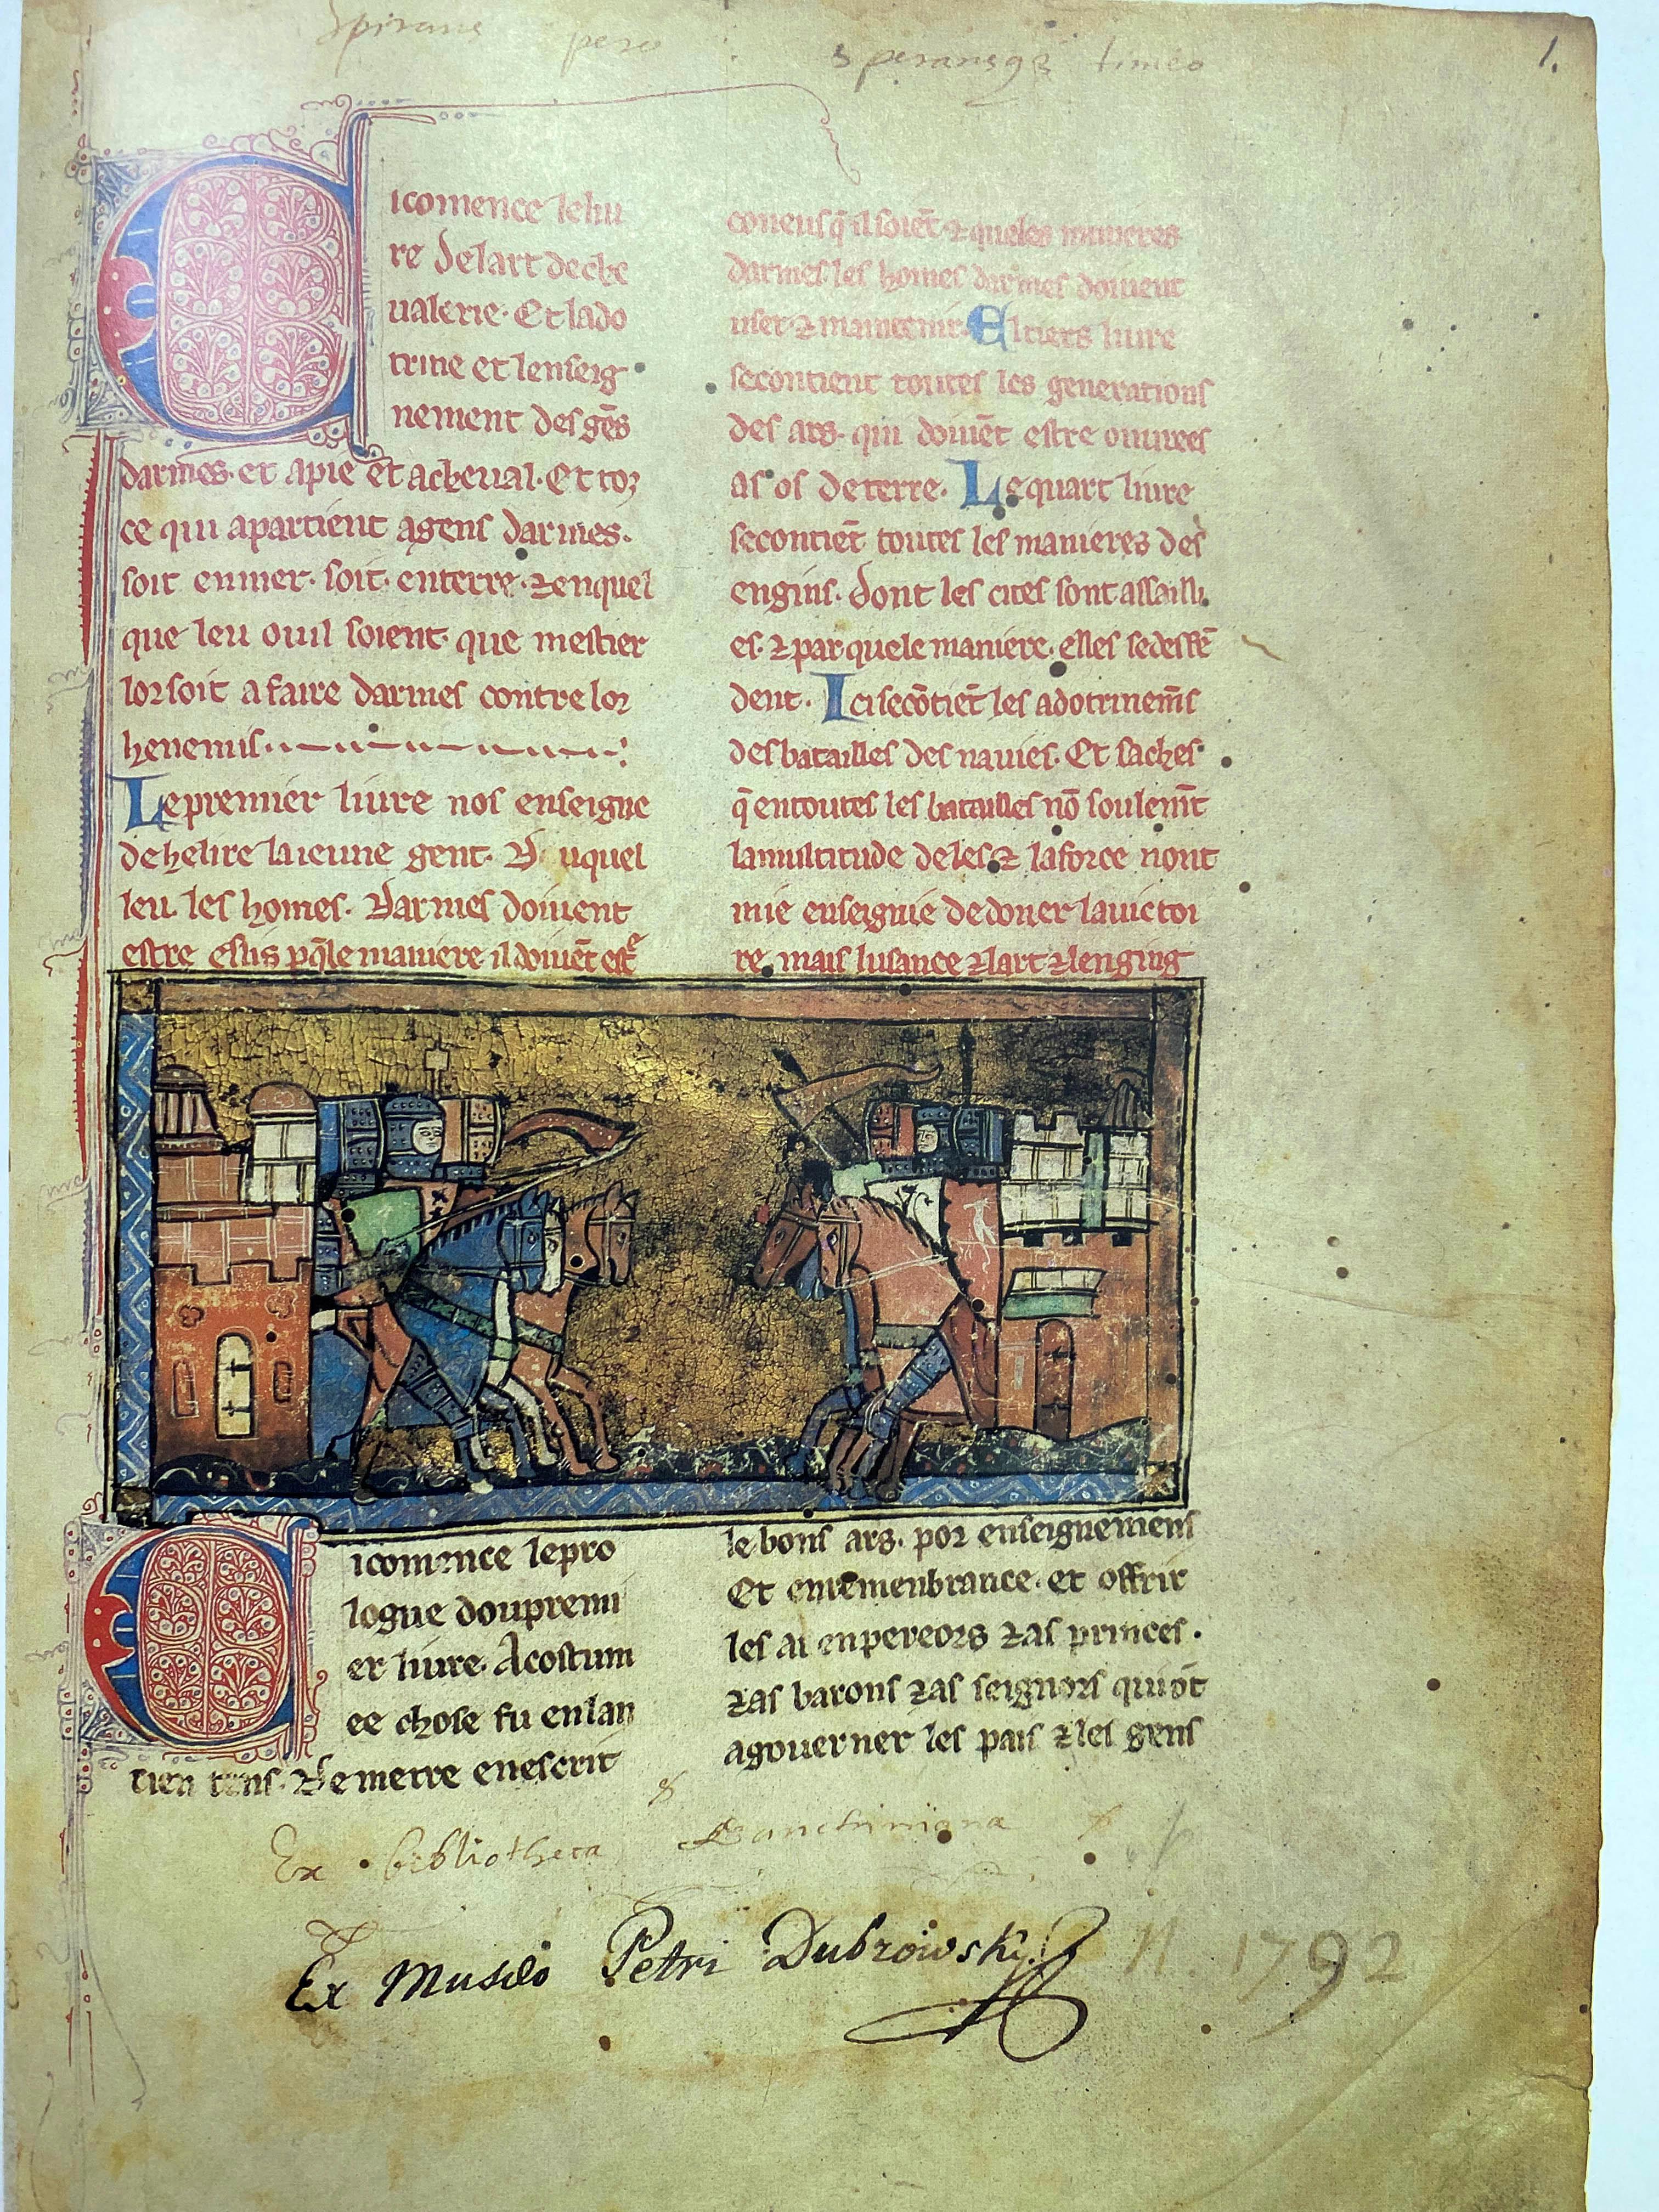 Spirans pero : speransq₃ timeo
1.
Cicomence leliu
re delart deche
ualerie. Et lado
trine et lenseig
nement des gēs
darmes. et apie et acheual. Et toz
ce qui apartient agens darmes.
soit enmer. soit. enterre. ⁊ enquel
que leu ouil soient. que mestier
lorsoit afaire darmes contre lor
henemis.
Lepremier liure nos enseigne
de helire laieune gent. D uquel
leu. les homes. Darmes doiuent
estre eslis pq̄le maniere il doiuēt estᵉ
coneus q̄ il soiēt. ⁊ queles manieres
darmes les homes darmes doiuent
user. ⁊ maintenir. El tiers liure
secontient toutes les generations
des ars. qui doiuēt estre ouurees
as os deterre. Lequart liure
secontiēt toutes les manieres des
engins. dont les cites sont assailli
es. ⁊ par quele maniere. elles sedeffē
dent. Ici secōtiēt les adotrinem̄s
des batailles des nauies. Et saches
q̄ entoutes les batailles nō soulem̄t
lamultitude deles ⁊ laforce nont
mie enseignie dedoner lauictoi
re. mais lusance ⁊ lart ⁊ lenging
Cicomence lepro
logue doupremi
er liure. Acostum
ee chose fu enlan
cien tens. De metre enescrit
le bons ars. por enseignemens
Et enremenbrance. et offrir
les ai enpereors ⁊ as princes.
⁊ as barons ⁊ as seignors qui ōt
agouerner les pais ⁊ les gens
Ex bibliotheca
Ex Musaeo Petri Dubrowsky. N. 1792